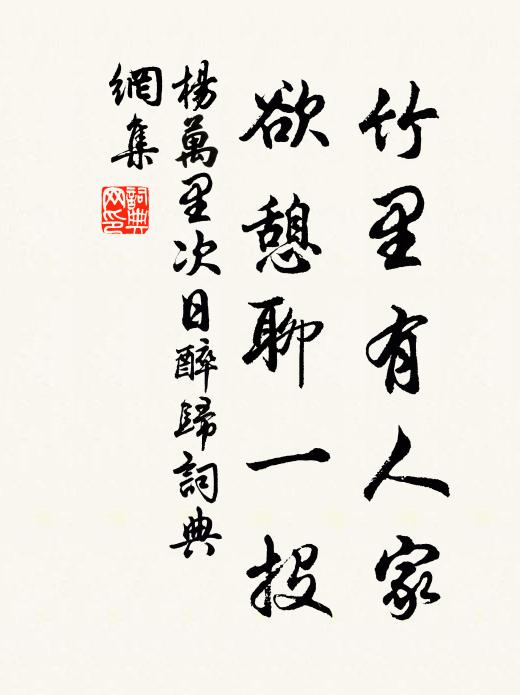 竹里有人家
欲憩聊一投
楊萬里次日醉歸詞典
網集
詞典网印